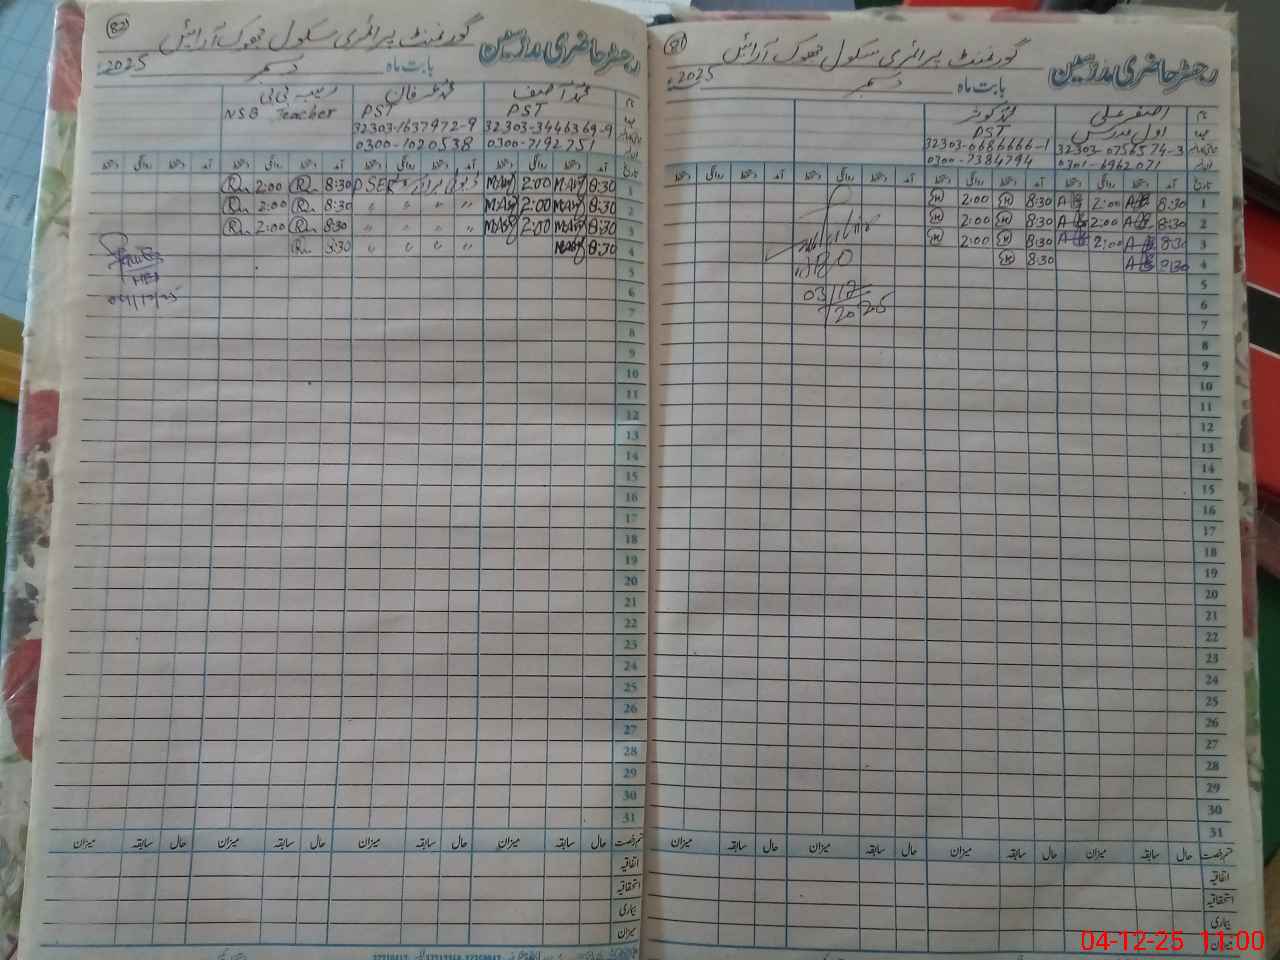 81
رجسٹر حاضری مدرسین
گورنمنٹ پرائمری سکول جھوک آرائیں
بابت ماہ دسمبر 2025ء
نام اصغر علی
عہدہ اول مدرس
32303-0756574-3
0301-6962071
محمد کوثر
PST
32303-0686666-1
0300-7384794
تاریخ آمد دستخط روانگی دستخط آمد دستخط روانگی دستخط آمد دستخط روانگی دستخط آمد دستخط روانگی دستخط
1 8:30 2:00 8:30 2:00
2 8:30 2:00 8:30 2:00
3 8:30 2:00 8:30 2:00
4 8:30 8:30
5
6
7
8
9
10
11
12
13
14
15
16
17
18
19
20
21
22
23
24
25
26
27
28
29
30
31
03/12/2025
قسم رخصت حال سابقہ میزان حال سابقہ میزان حال سابقہ میزان حال سابقہ میزان
اتفاقیہ
استحقاقیہ
بیماری
میزان
82
رجسٹر حاضری مدرسین
گورنمنٹ پرائمری سکول جھوک آرائیں
بابت ماہ دسمبر 2025ء
محمد آصف
PST
32303-3446369-9
0300-7192751
محمد عرفان
PST
32303-1637972-9
0300-1020538
بی بی
NSB Teacher
تاریخ آمد دستخط روانگی دستخط آمد دستخط روانگی دستخط آمد دستخط روانگی دستخط آمد دستخط روانگی دستخط
1 8:30 2:00 PSER 8:30 2:00
2 8:30 2:00 〃 〃 〃 〃 8:30 2:00
3 8:30 2:00 〃 〃 〃 〃 8:30 2:00
4 8:30 〃 〃 〃 〃 8:30
5
6
7
8
9
10
11
12
13
14
15
16
17
18
19
20
21
22
23
24
25
26
27
28
29
30
31
04/12/25
قسم رخصت حال سابقہ میزان حال سابقہ میزان حال سابقہ میزان حال سابقہ میزان
اتفاقیہ
استحقاقیہ
بیماری
میزان
04-12-25 11:00